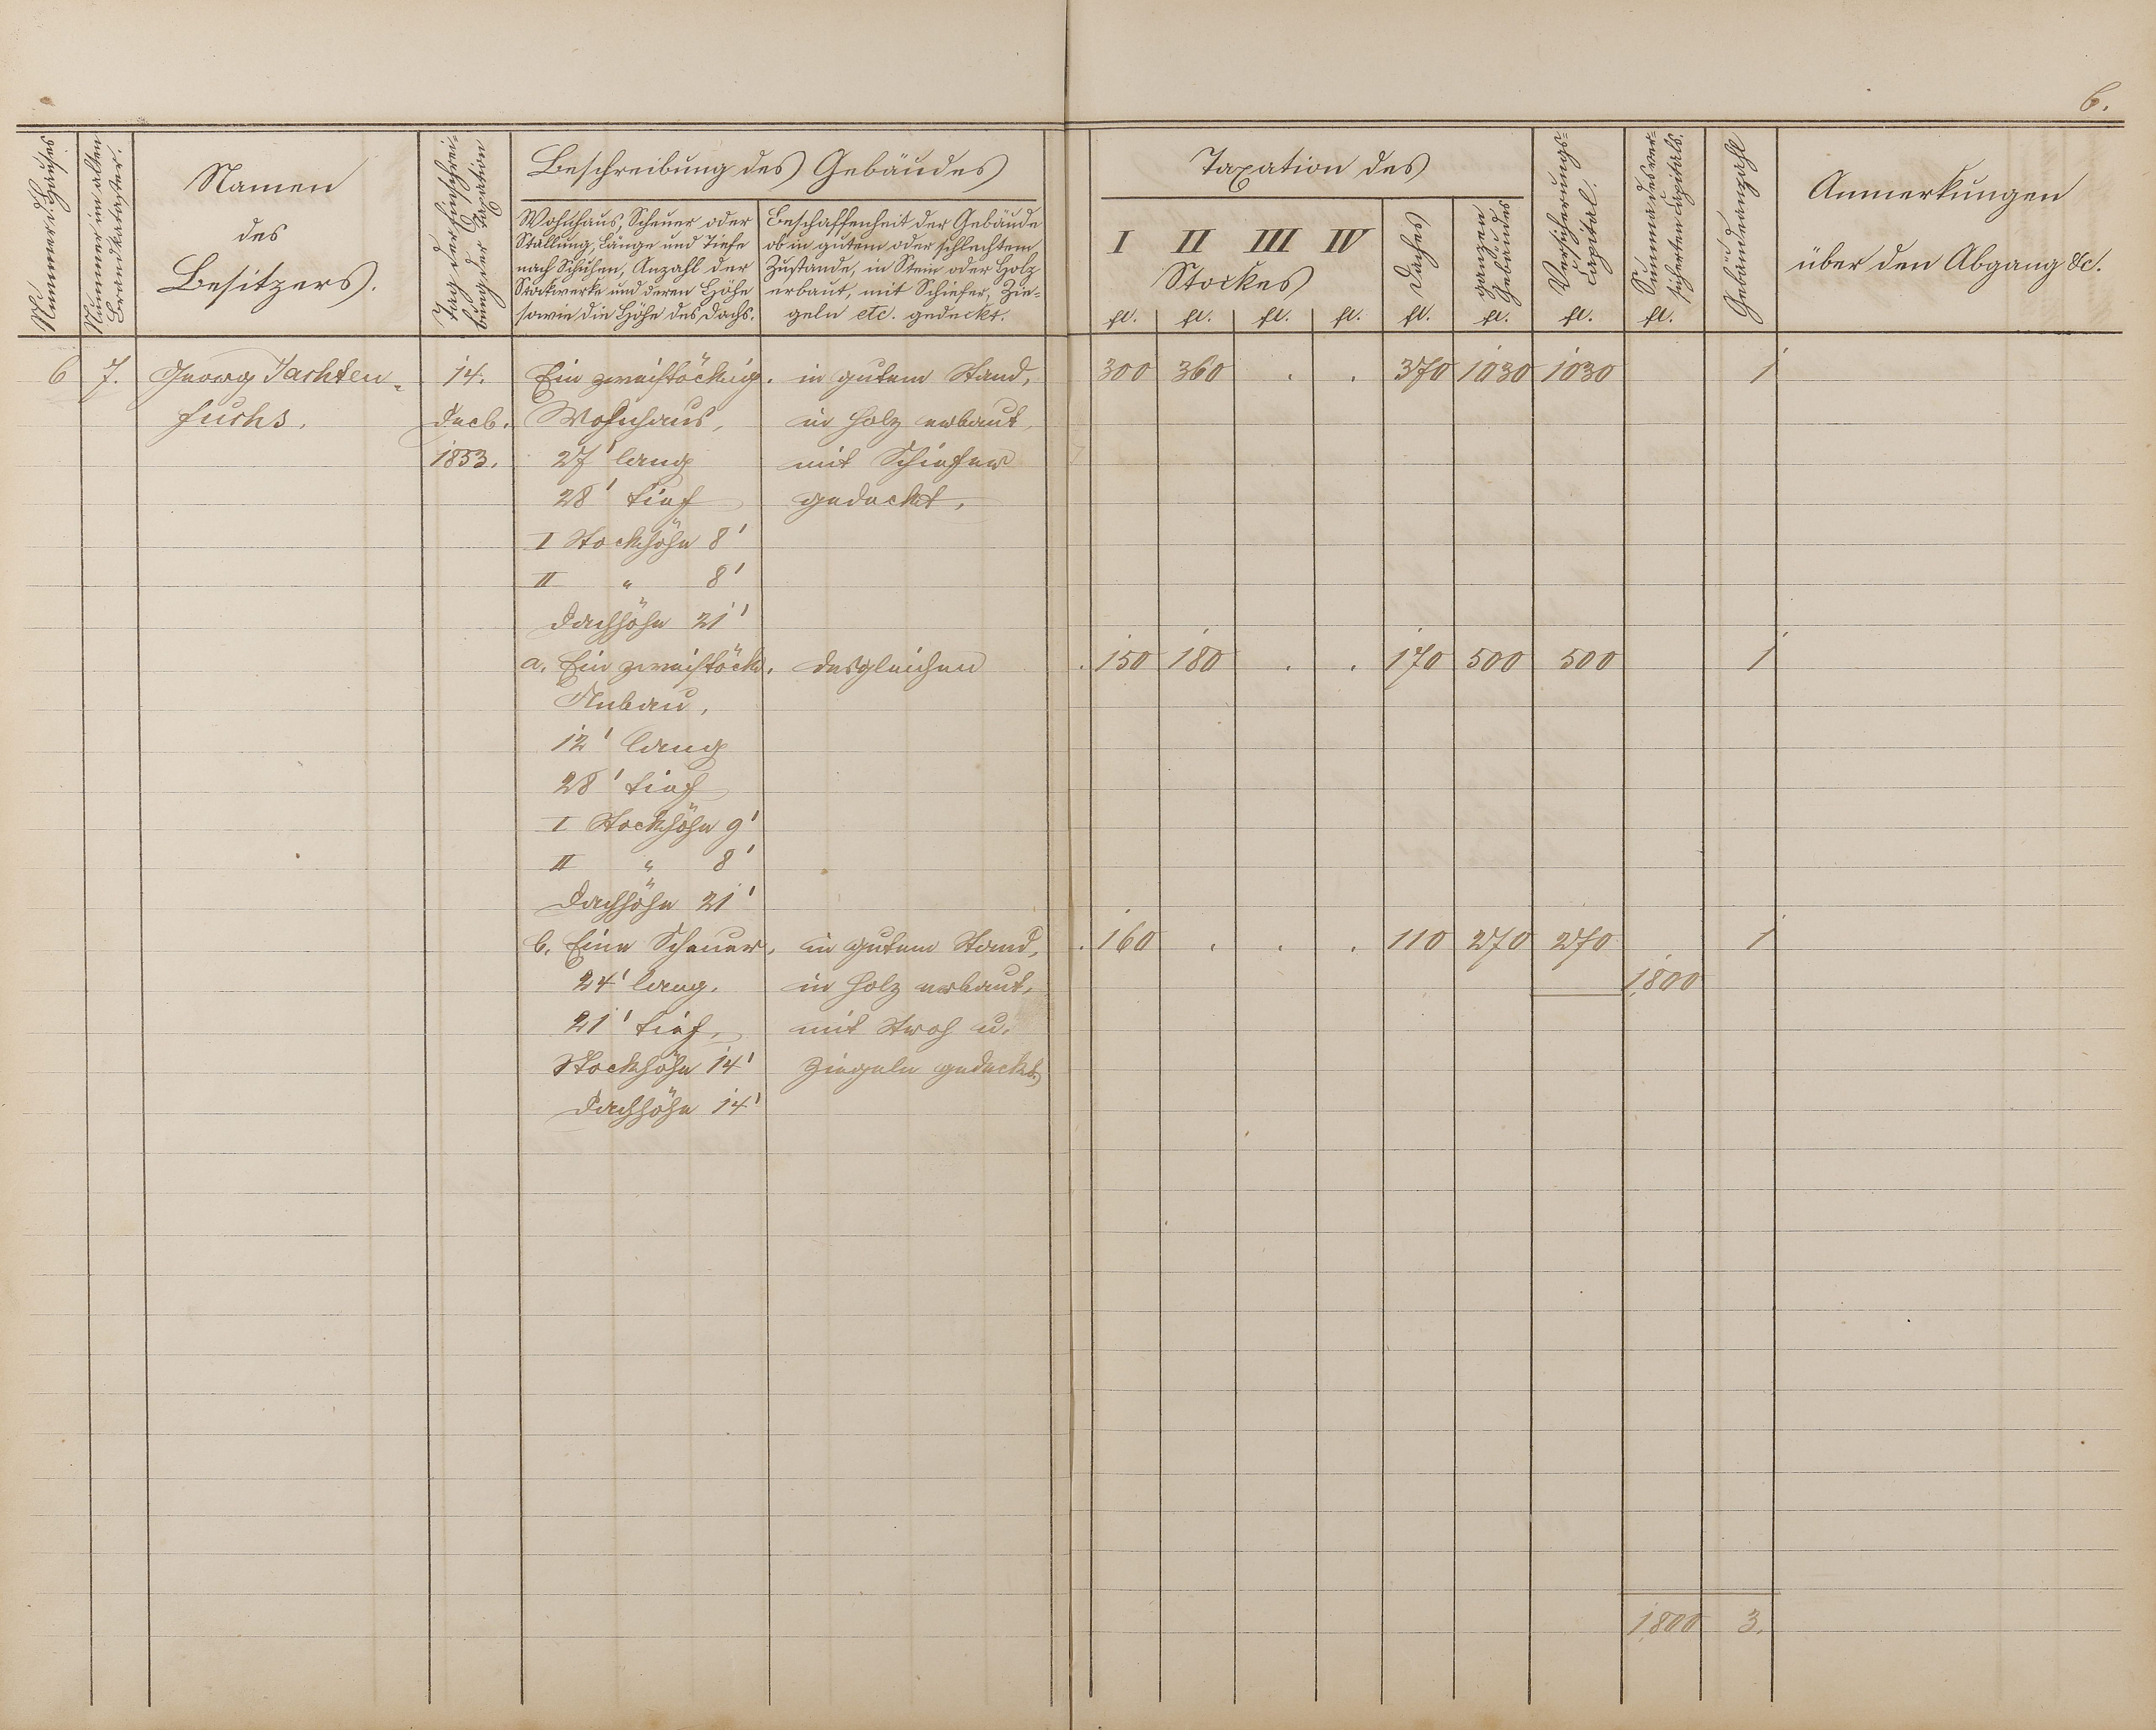 6.
Nummer d. Hauses
Nummer im alten
Brandkataster.
Namen
des
Besitzers.
Tag der Einschrei-
bung der Taxation
Beschreibung des Gebäudes
Wohnhaus, Scheuer oder
Stallung, Länge und Tiefe
nach Schuhen, Anzahl der
Stockwerke und deren Höhe
sowie die Höhe des Dachs.
Beschaffenheit der Gebäude
ob in gutem oder schlechtem
Zustande, in Stein oder Holz
erbaut, mit Schiefer, Zie-
geln etc. gedeckt.
Taxation des
I II III IV
Stockes
Daches
ganzen
Gebäudes
Versicherungs-
capital.
Summa des ver-
sicherten Capitals.
Gebäudeanzahl
Anmerkungen
über den Abgang &c.
fl. fl. fl. fl. fl. fl. fl. fl.
6 7. Georg Tachten- 14. Ein zweistöckig. in gutem Stand, 300 360 . . 370 1030 1030 1
fuchs. Decb. Wohnhaus, in Holz erbaut,
1853. 27' lang mit Schiefer
28' tief gedeckt.
I Stockhöhe 8'
II " 8'
Dachhöhe 21'
a. Ein zweistöck. desgleichen . 150 180 . . 170 500 500 1
Anbau,
12' lang
28' tief
I Stockhöhe 9'
II " 8'
Dachhöhe 21'
b. Eine Scheuer, in gutem Stand, . 160 . . . 110 270 270 1
24' lang. in Holz erbaut, 1,800
21' tief, mit Stroh u.
Stockhöhe 14' Ziegeln gedeckt
Dachhöhe 14'
1,800 3.